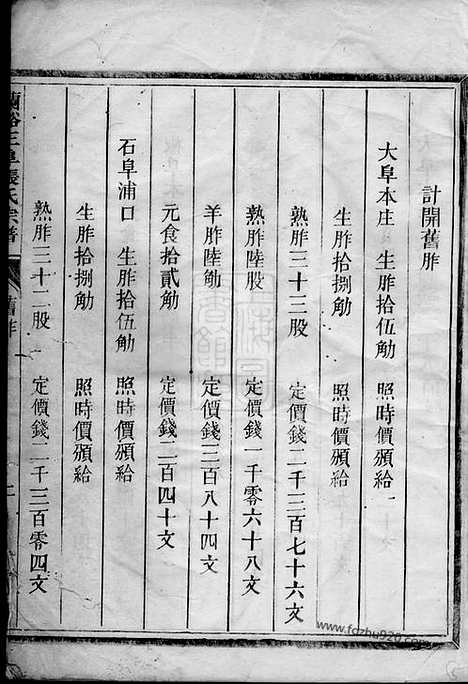 計開舊胙
大阜本庄 生胙拾伍觔 照時價頒給
生胙拾捌觔 照時價頒給
熟胙三十三股 定價錢二千三百七十六文
熟胙陸股 定價錢一千零六十八文
羊胙陸觔 定價錢三百八十四文
元食拾貳觔 定價錢二百四十文
石阜浦口 生胙拾伍觔 照時價頒給
生胙拾捌觔 照時價頒給
熟胙三十二股 定價錢二千三百零四文
張氏宗譜 舊胙
www.fozhu920.com